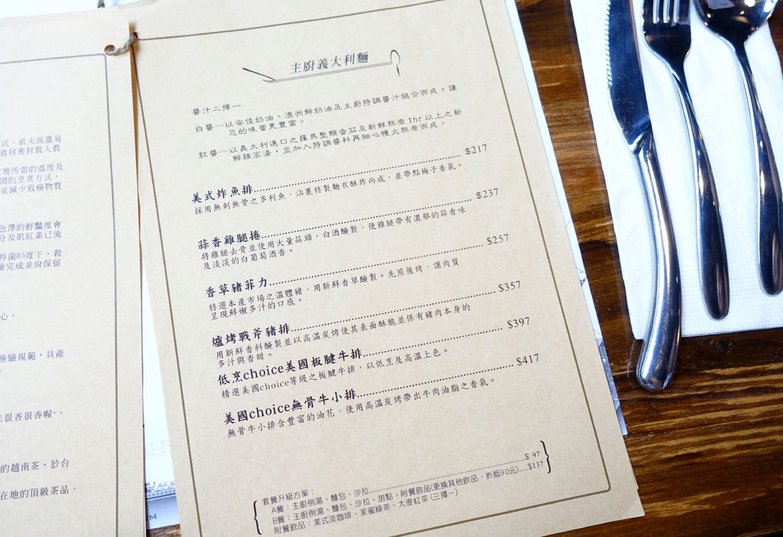 式。直火高溫易
食材密封裝入質
地所需的溫度及
開的烹煮方式,
並減少致癌物質
色澤的鮮豔度會
分及肌紅素已流
桿菌85度下,殺
完成並向保留
心。
檢驗規範,具產
很香很香喔~。
的越南茶,於台
在地的頂級茶品。
主廚義大利麵
醬汁二擇一
白醬—以安佳奶油、澳洲鮮奶油及主廚特調醬汁組合而成,讓
您的味蕾更豐富。
紅醬—以義大利進口之羅馬整顆番茄及新鮮熬煮1hr以上之新
鮮雞高湯,並加入特調醬料再細心慢火熬煮而成。
美式炸魚排 $217
採用無刺無骨之多利魚,沾裹特製麵衣酥炸而成、並帶點梅子香氣。
蒜香雞腿捲 $237
將雞腿去骨並使用大量蒜頭、白酒醃製,使雞腿帶有濃郁的蒜香味
及淡淡的白葡萄酒香。
香草豬菲力 $257
特選本產市場之溫體豬,用新鮮香草醃製。先煎後烤,讓肉質
呈現鮮嫩多汁的口感。
爐烤戰斧豬排 $357
用新鮮香料醃製並以高溫炭烤使其表面酥脆並保有豬肉本身的
多汁與香甜。
低烹choice美國板腱牛排 $397
精選美國choice等級之板腱牛排,以低烹及高溫上色。
美國choice無骨牛小排 $417
無骨牛小排含豐富的油花,使用高溫炭烤帶出牛肉油脂之香氣。
套餐升級方案:
A餐:主廚例湯、麵包、沙拉 $ 97
B餐:主廚例湯、麵包、沙拉、甜點、附餐飲品(更換其他飲品,折抵90元) $137
附餐飲品:美式淡咖啡、茉蜜綠茶、大麥紅茶 (三擇一)